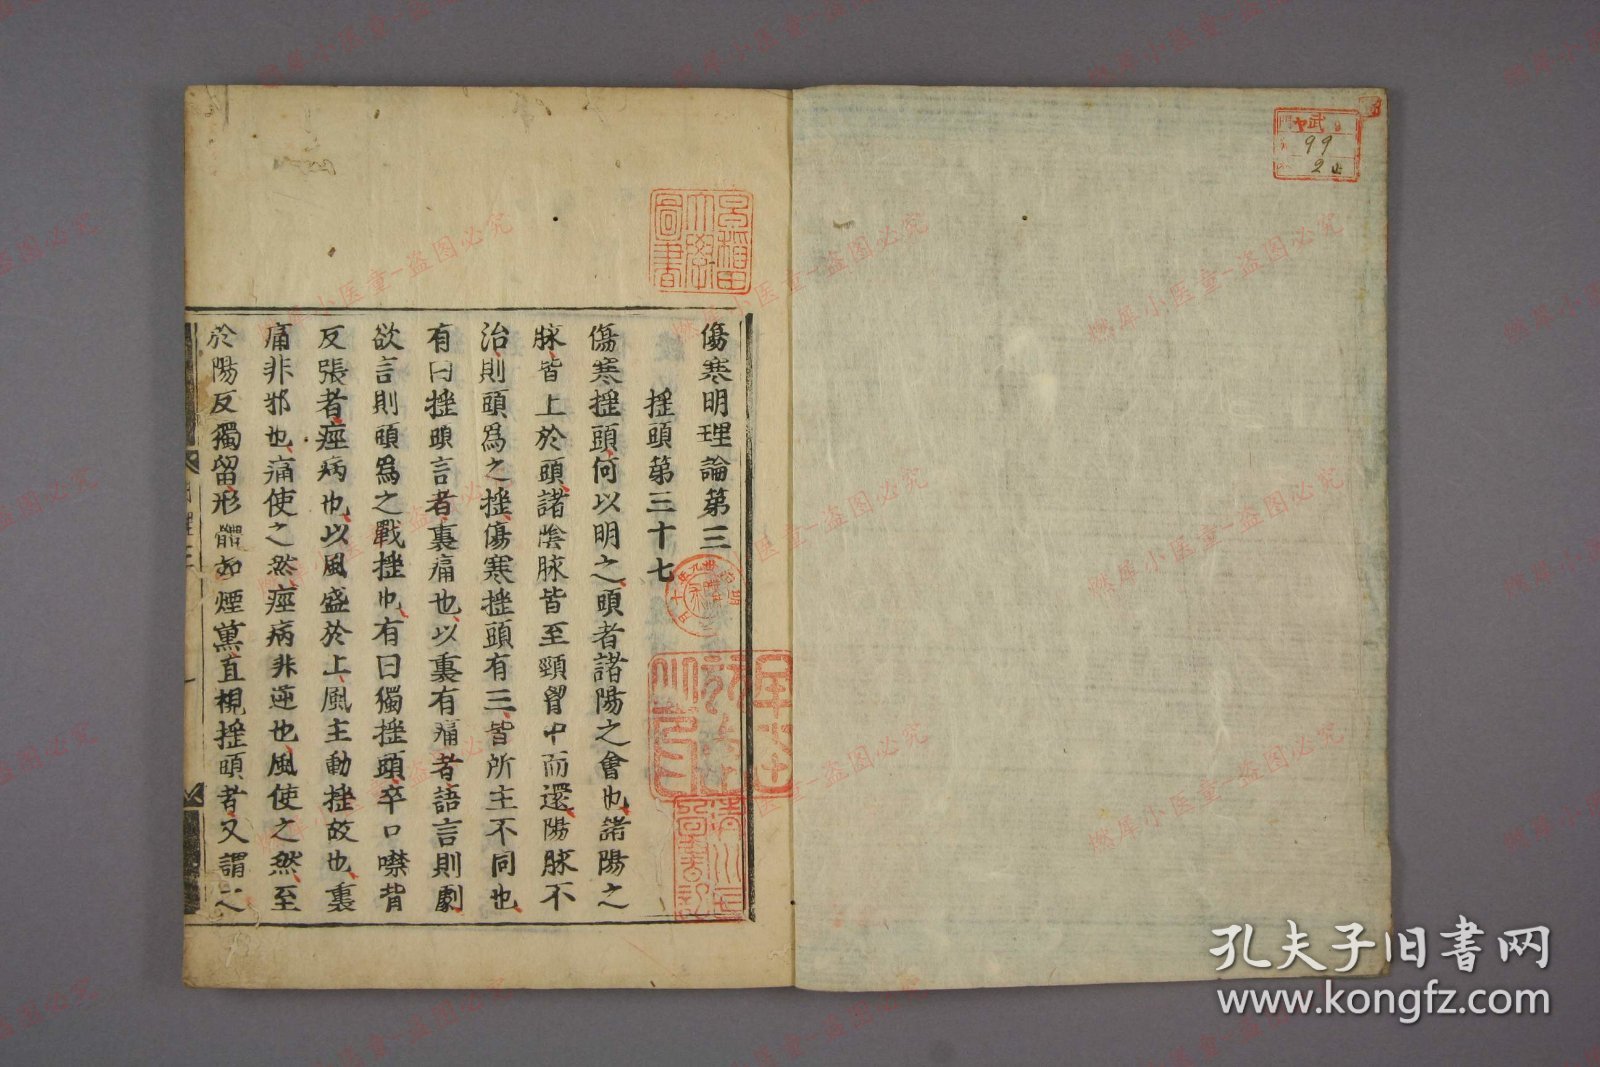 傷寒明理論第三
搖頭第三十七
傷寒搖頭何以明之頭者諸陽之會也諸陽之
脉皆上於頭諸陰脉皆至頸胷中而還陽脉不
治則頭為之搖傷寒搖頭有三皆所主不同也
有曰搖頭言者裏痛也以裏有痛者語言則劇
欲言則頭為之戰搖也有曰獨搖頭卒口噤背
反張者痙病也以風盛於上風主動搖故也裏
痛非邪也痛使之然痙病非逆也風使之然至
於陽反獨留形體如煙薰直視搖頭者又謂之
早稲田大學圖書
武
99
2
孔夫子旧书网
www.kongfz.com
燃犀小医童-盗图必究